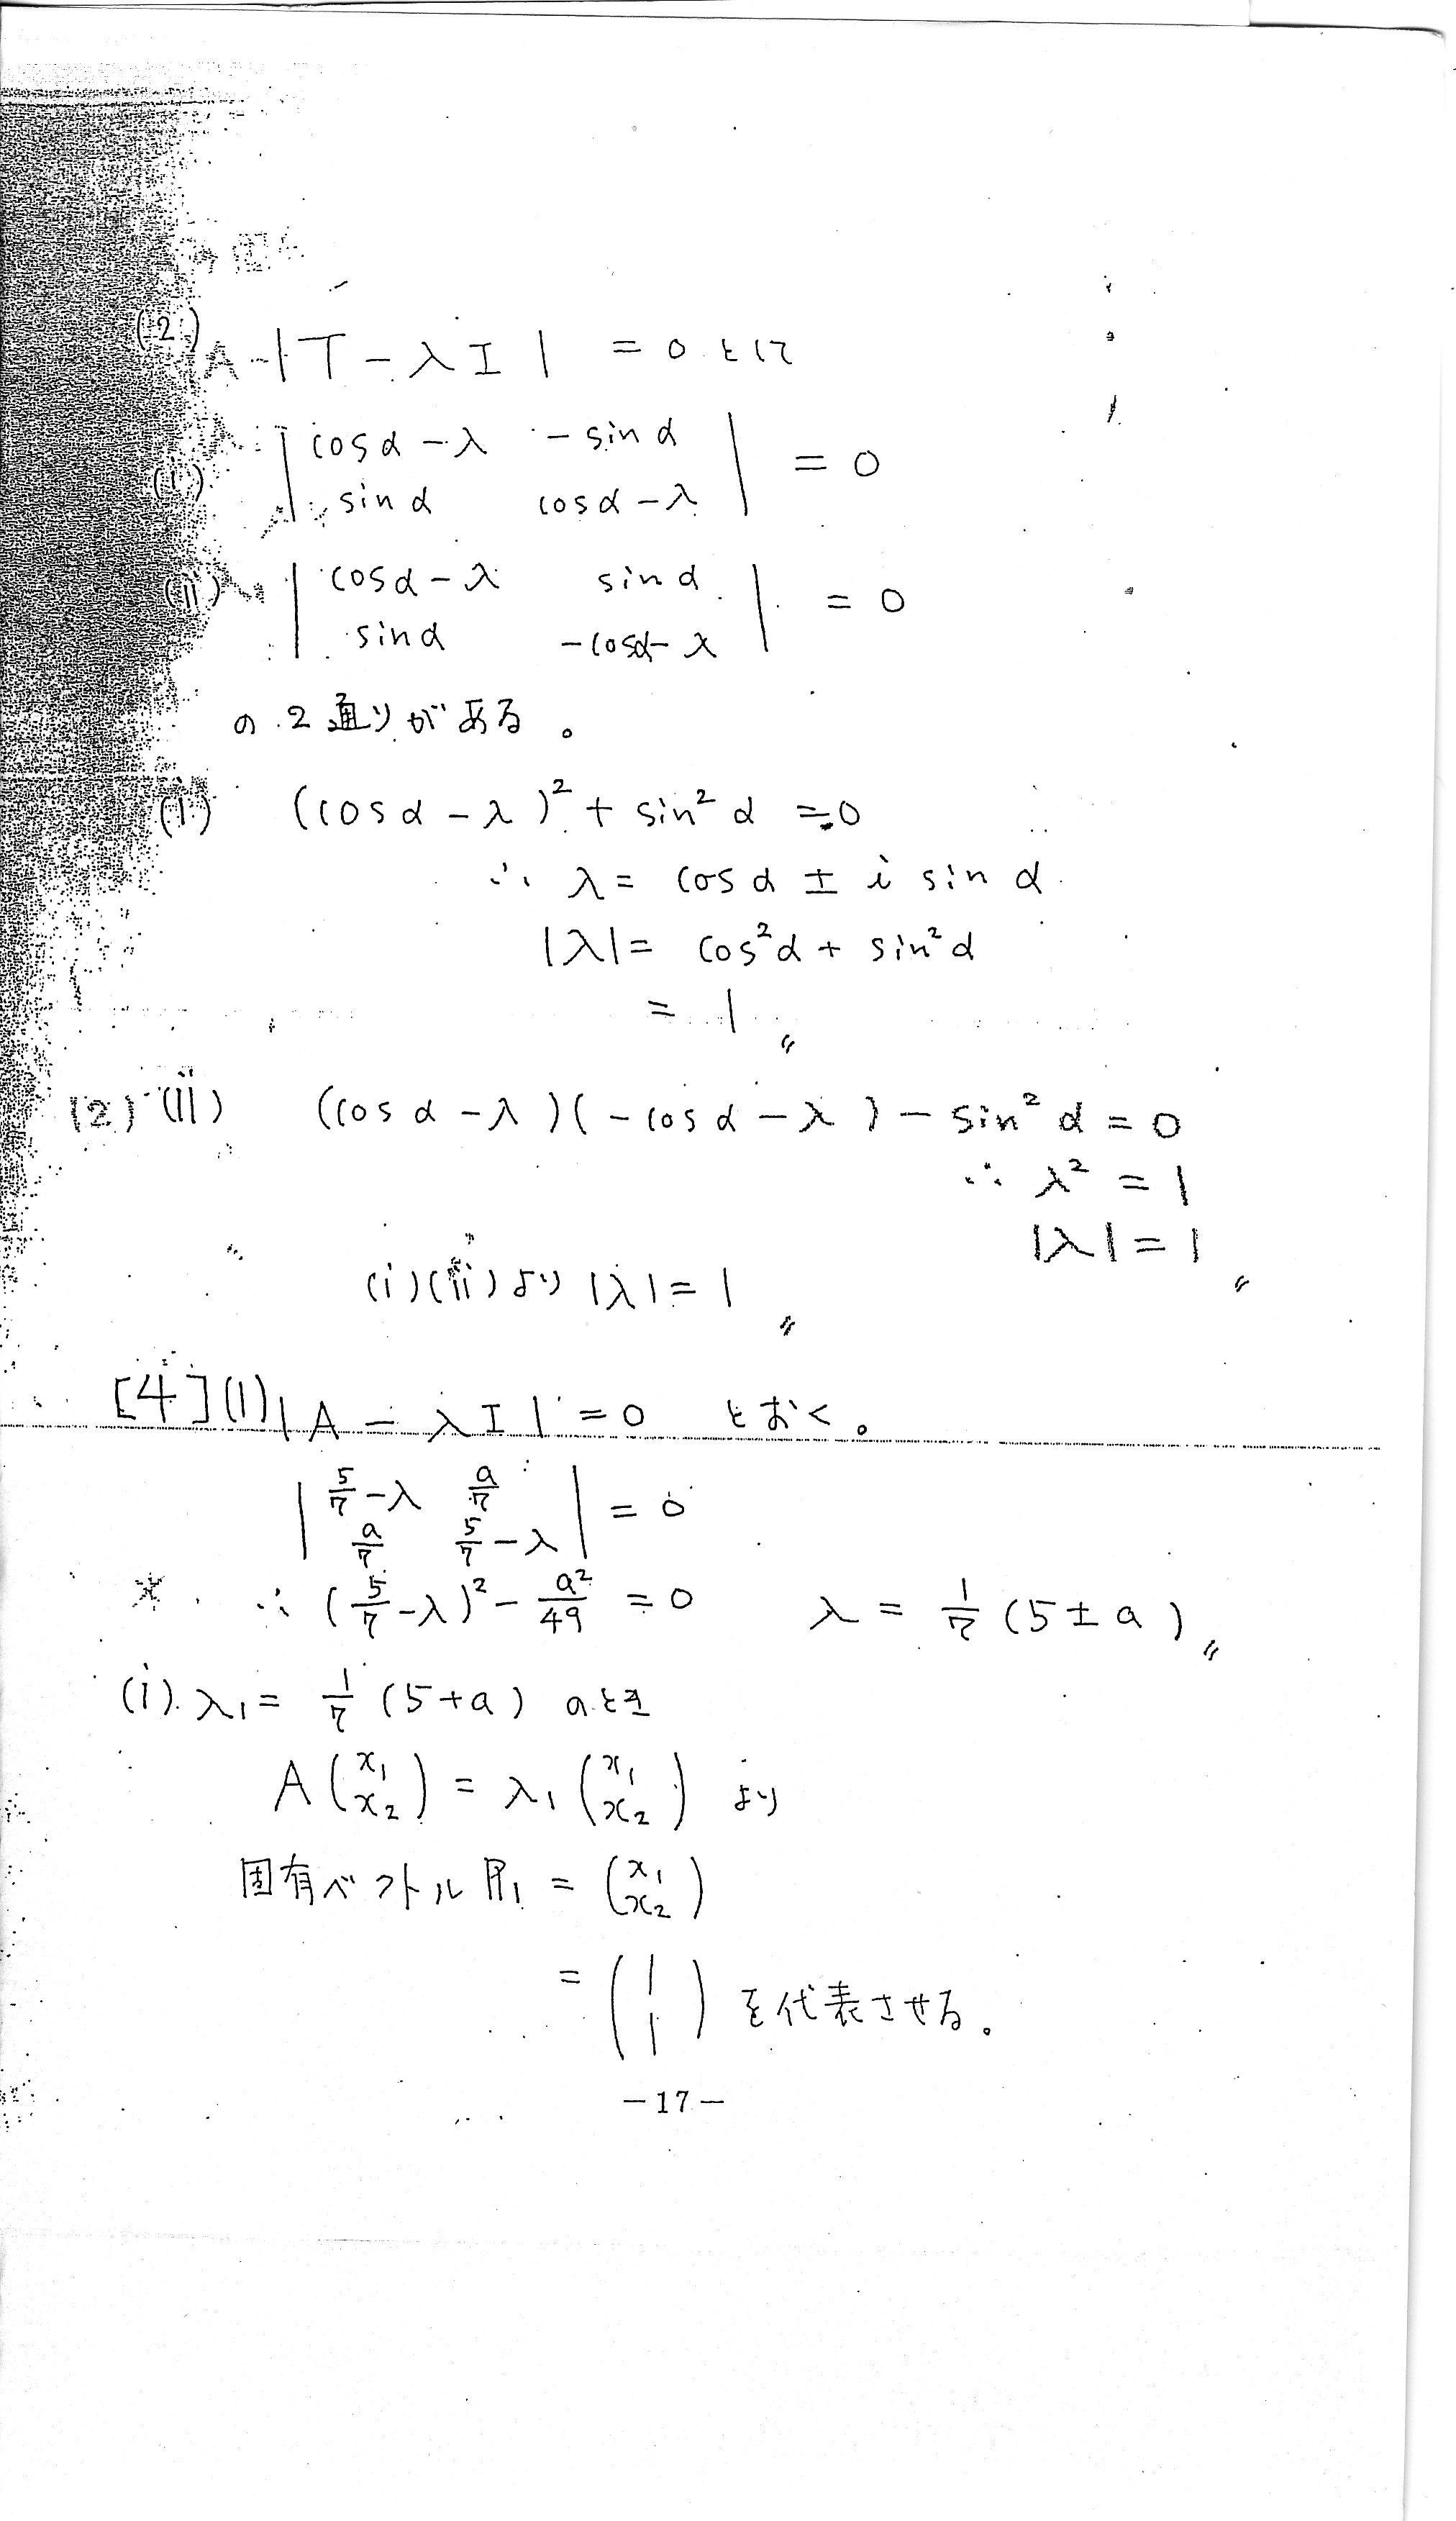 (2)
|T - λI| = 0 として
(i) | cosα-λ  -sinα |
| sinα  cosα-λ | = 0
(ii) | cosα-λ  sinα |
| sinα  -cosα-λ | = 0
の 2 通りがある。
(i) (cosα-λ)² + sin²α = 0
∴ λ = cosα ± i sinα
|λ| = cos²α + sin²α
= 1 〃
(2) (ii) (cosα-λ)(-cosα-λ) - sin²α = 0
∴ λ² = 1
|λ| = 1 〃
(i)(ii)より |λ| = 1 〃
[4](1) |A - λI| = 0 とおく。
| 5/7-λ  a/7 |
| a/7  5/7-λ | = 0
* ∴ (5/7-λ)² - a²/49 = 0  λ = 1/7 (5±a) 〃
(i). λ₁ = 1/7 (5+a) のとき
A(x₁ x₂) = λ₁(x₁ x₂) より
固有ベクトル ℙ₁ = (x₁ x₂)
= (1 1) を代表させる。
-17-